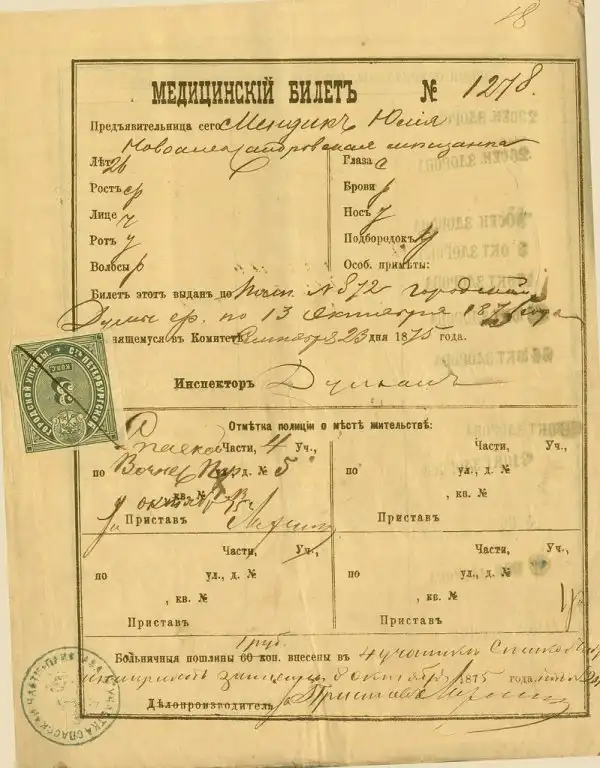 18
МЕДИЦИНСКІЙ БИЛЕТЪ № 1278.
Предъявительница сего Мендикъ Юлія
Новоалександровская мѣщанка
Лѣтъ 26 Глаза с
Ростъ ср Брови р
Лице ч Носъ у
Ротъ у Подбородокъ у
Волосы р Особ. примѣты:
Билетъ этотъ выданъ по № 872 городской
Думы ср. по 13 октября 1875 года
явящемуся въ Комитетъ 23 дня 1875 года.
Инспекторъ
С.ПЕТЕРБУРГСКОЙ ГОРОДСКОЙ УПРАВЫ
3
КОП.
Отмѣтка полиціи о мѣстѣ жительства:
Спасской Части, 4 Уч., Части, Уч.,
по д. № 5 по ул., д. №
кв. № , кв. №
Приставъ Приставъ
Части, Уч., Части, Уч.,
по ул., д. № по ул., д. №
, кв. № , кв. №
Приставъ Приставъ
1 руб.
Больничныя пошлины 60 коп. внесены въ 4 участокъ Спасской
8 октября 1875 года,
Дѣлопроизводитель